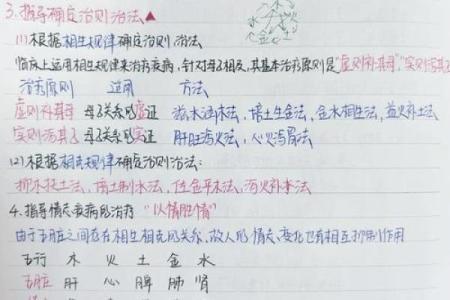 3.指导确定治则治法▲
金 水
(1)根据相生规律确定治则治法
临床上运用相生规律来治疗疾病,针对母子相及,其基本治疗原则是"虚则补其母""实则泻其子
治疗原则 适用 方法
虚则补其母 母子关系的虚证 滋水涵木法,培土生金法,金水相生法,益火补土法
实则泻其子 母子关系的实证 肝旺泻火法,心火泻胃法
(2)根据相克规律确定治则治法:
抑木扶土法,培土制水法,佐金平木法,泻火补水法
4.指导情志疾病的治疗 "以情胜情"
由于五脏之间存在相生相克的关系,故人的情志变化也有相互抑制作用
五行 木 火 土 金 水
五脏 肝 心 脾 肺 肾